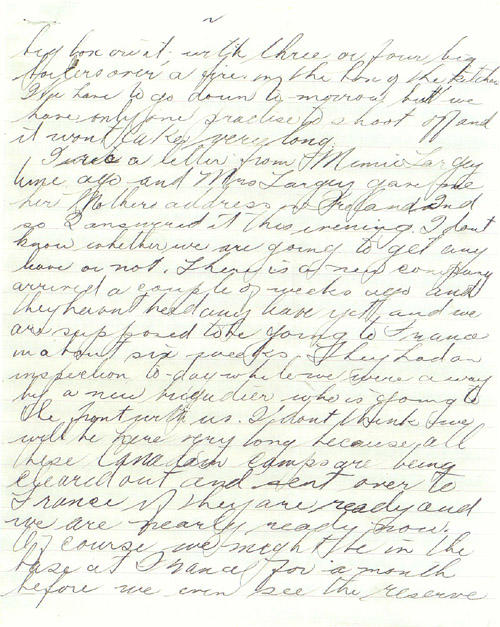 big box on it. with three or four big
boilers over a fire in the
We have to go down to-morrow but we
have only one practise to shoot off and
it wont take very long.
I rec'd a letter from Mimie Largey
time ago and Mrs Largey gave me
her Mothers address in Ireland and
so I answered it this evening. I dont
know whether we are going to get any
leave or not. There is a new company
arrived a couple of weeks ago and
they havent had any leave yet, and we
are supposed to be going to France
in about six weeks. They had an
inspection to-day while we were away
by a new brigadier who is going to
the front with us. I dont think we
will be here very long because all
these Canadian camps are being
cleared out and sent over to
France if they are ready and
we are nearly ready now.
Of course we might be in the
base at France for a month
before we even see the reserve